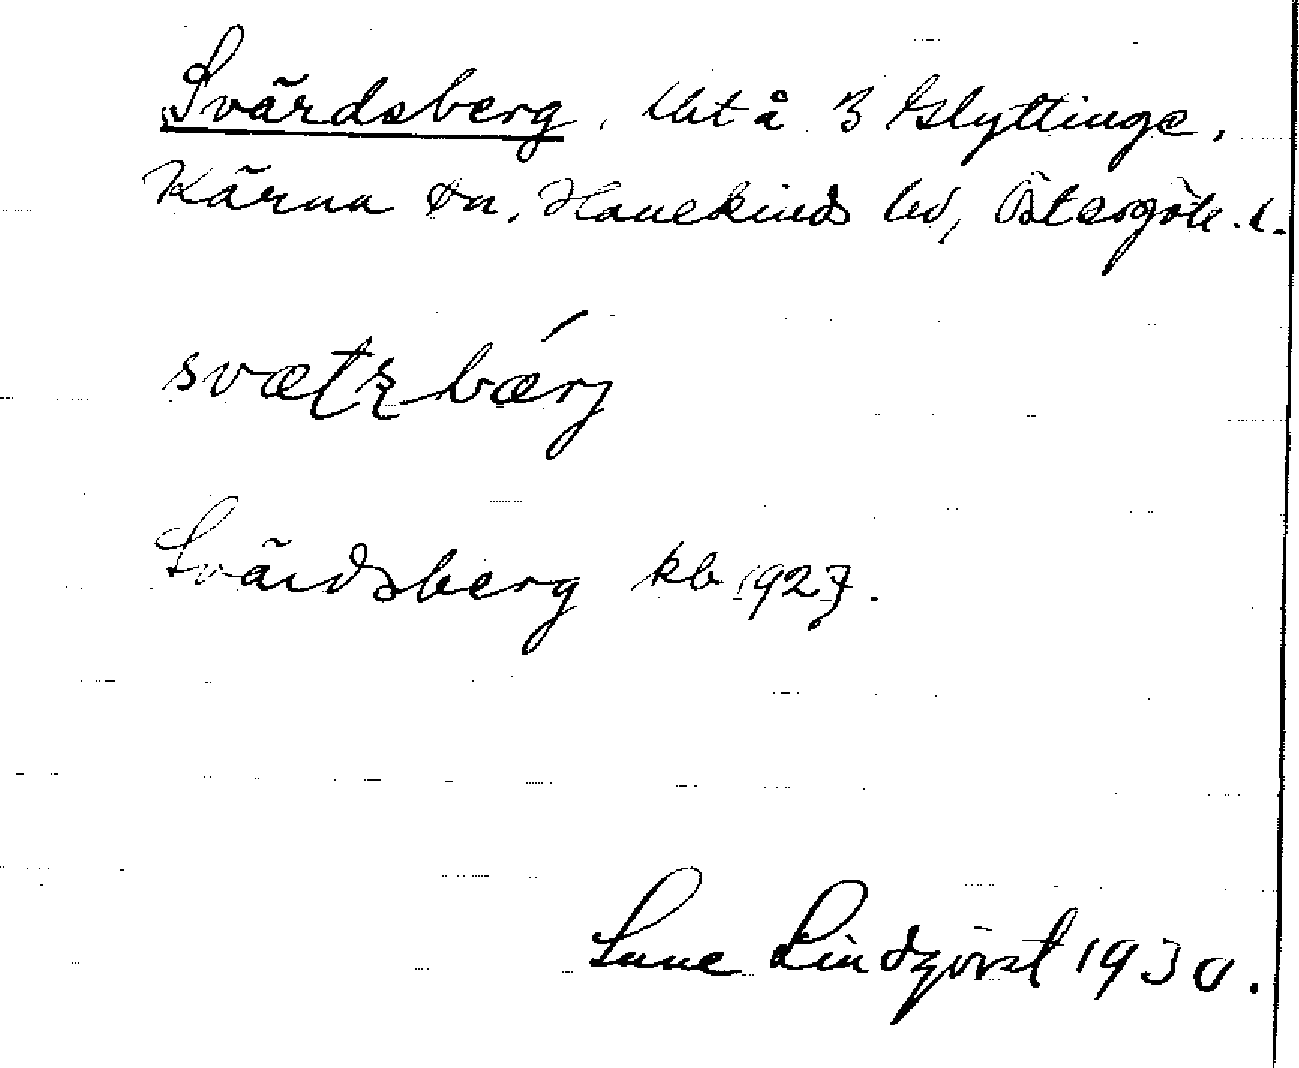 Svärdsberg, lht å 3 Glyttinge,
Kärna sn, Hanekinds hd, Östergötl. l.
svætʂbærj
Svärdsberg kb 1927.
Sune Lindqvist 1930.